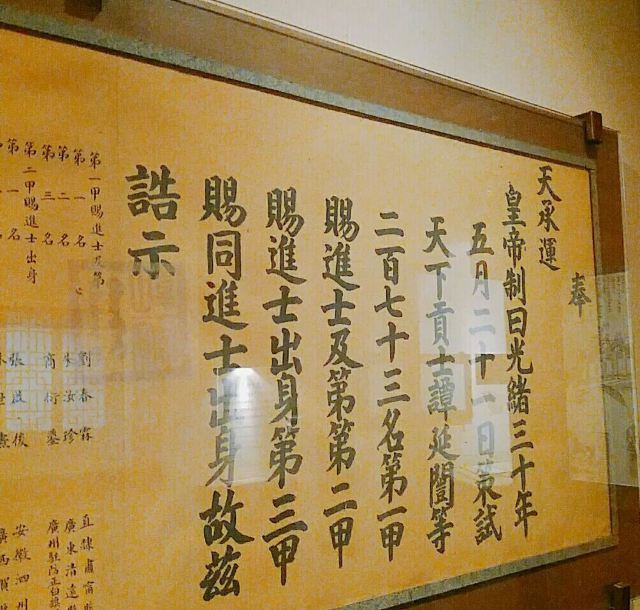 奉
天承運
皇帝制曰光緒三十年
五月二十一日策試
天下貢士譚延闓等
二百七十三名第一甲
賜進士及第第二甲
賜進士出身第三甲
賜同進士出身故茲
誥示
第一甲賜進士及第
第一名 劉春霖 直隸肅寧
第二名 朱汝珍 廣東清遠
第三名 商衍鎏 廣州駐防正白旗
第二甲賜進士出身
第一名 張啟後 安徽泗州
名 廣西賀